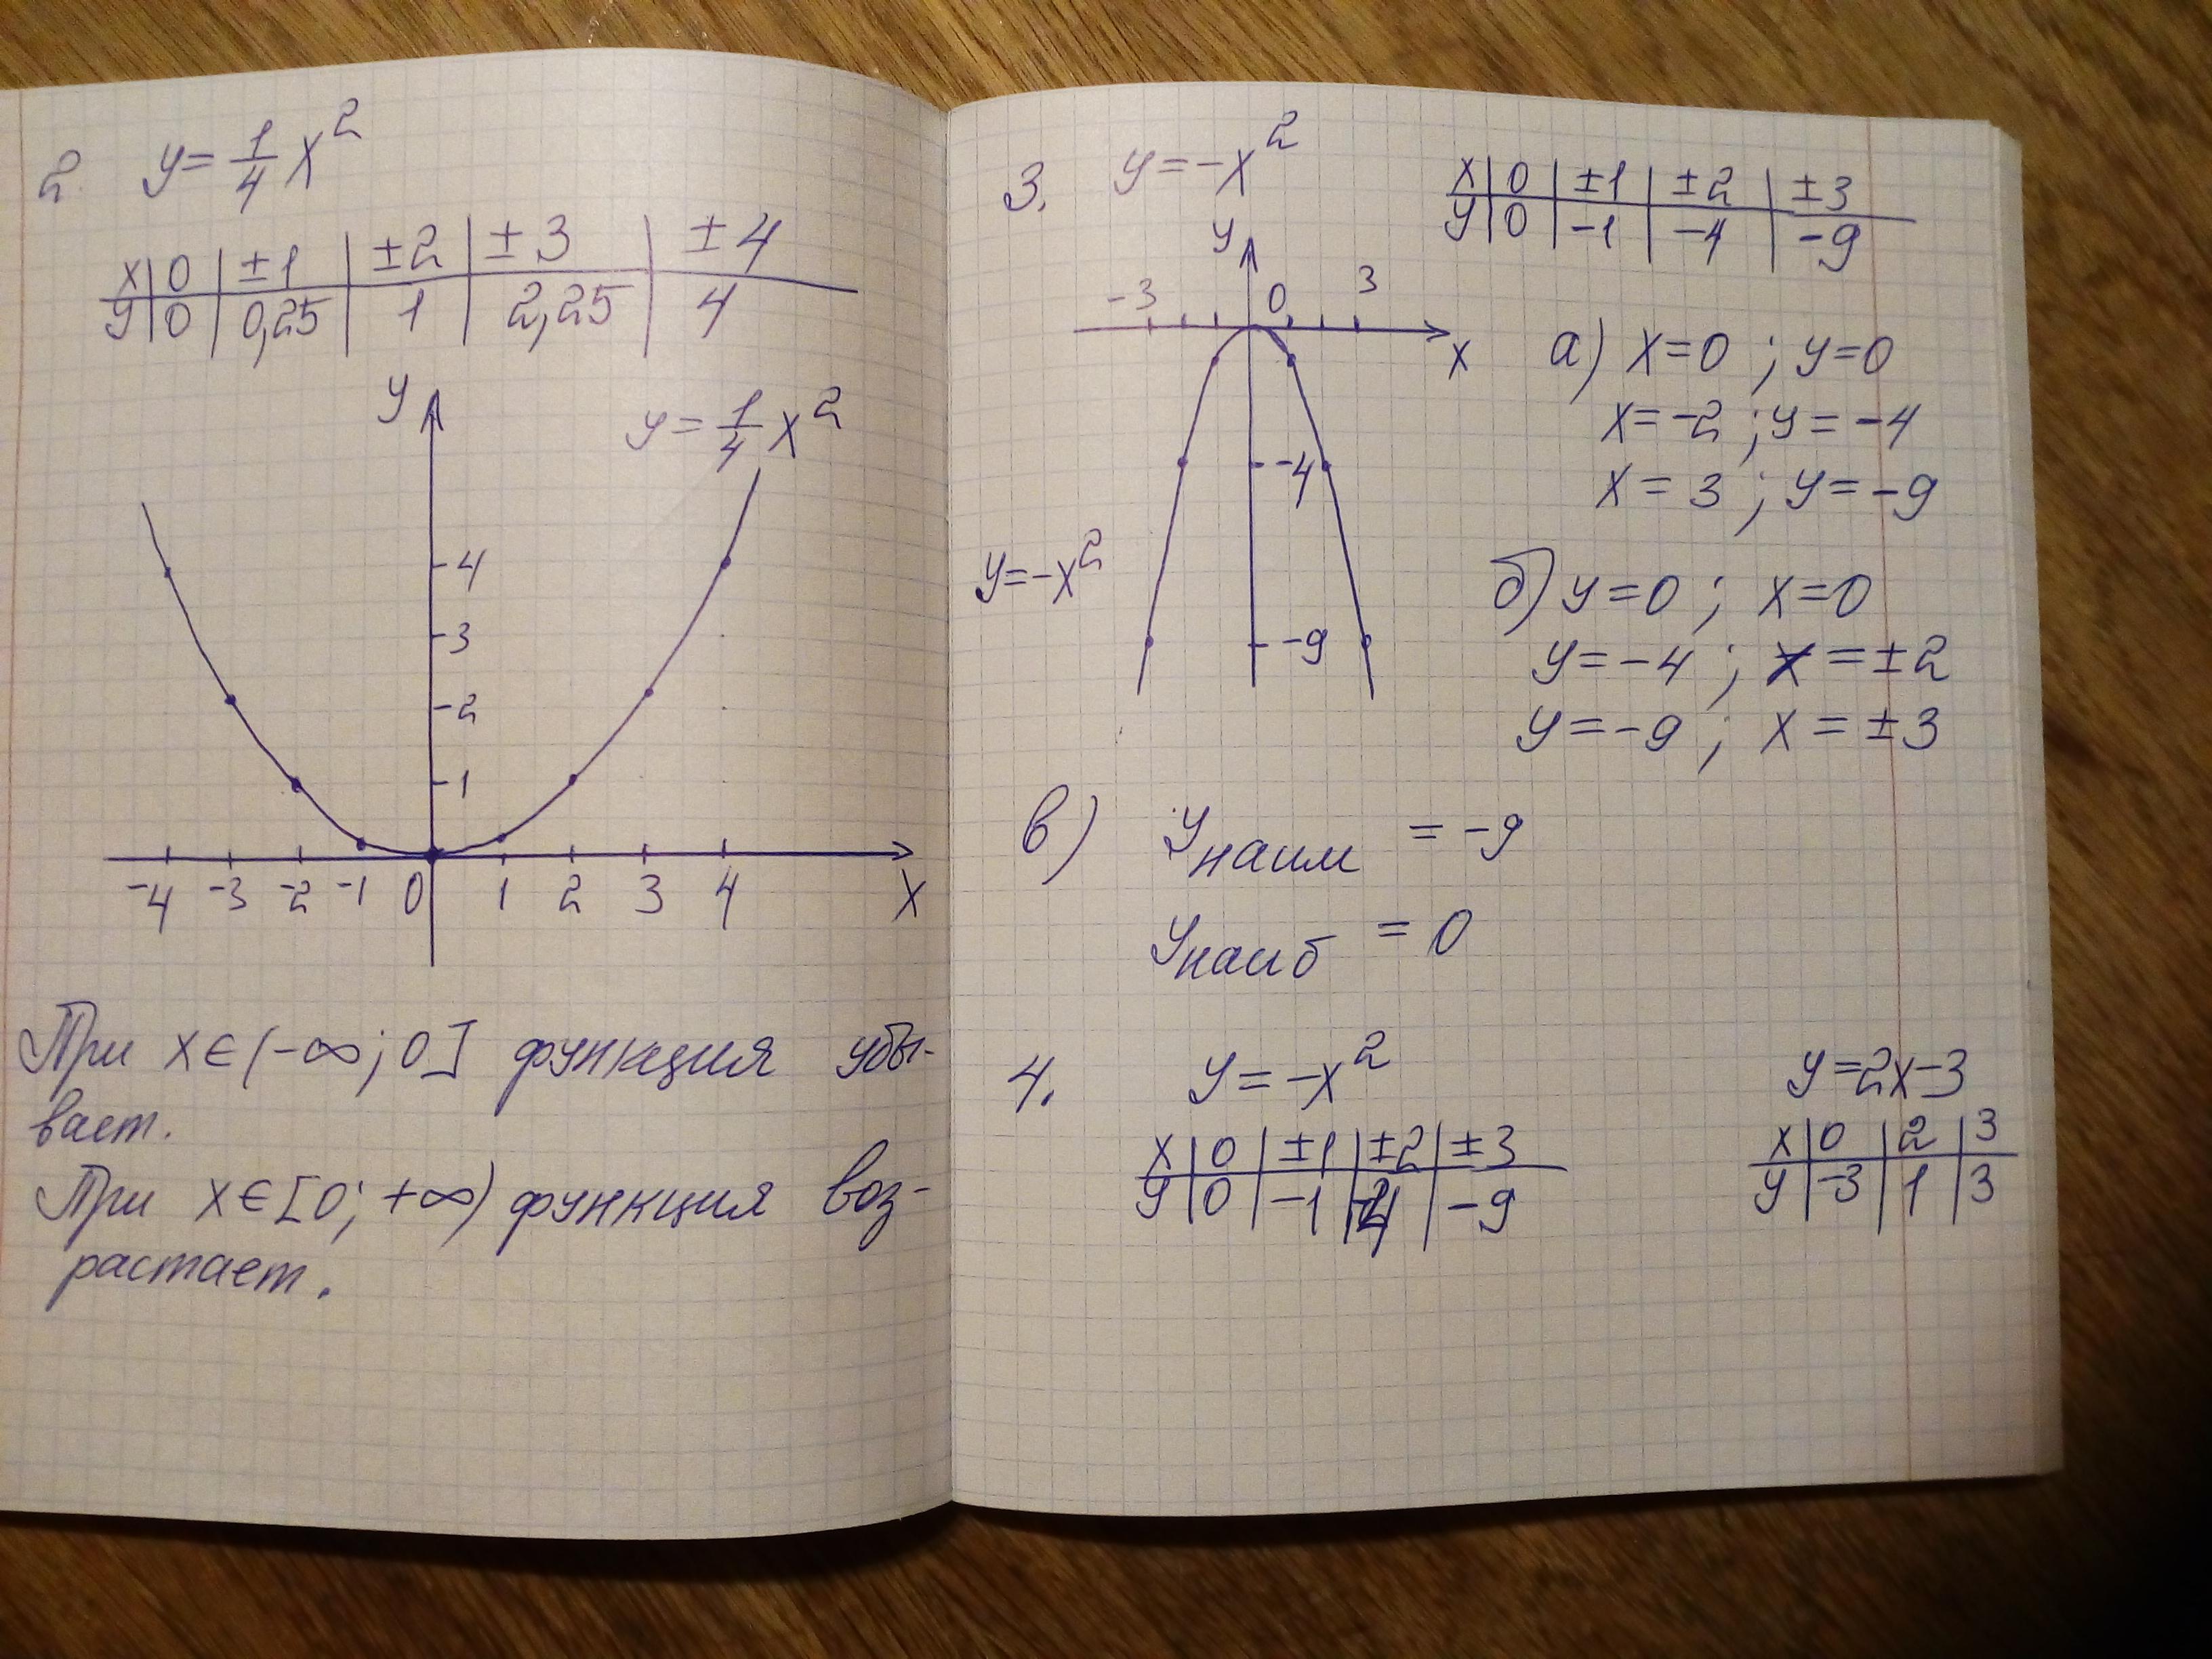 2. y = 1/4 x²
x | 0 | ±1 | ±2 | ±3 | ±4
y | 0 | 0,25 | 1 | 2,25 | 4
y
y = 1/4 x²
4
3
2
1
-4 -3 -2 -1 0 1 2 3 4 x
При x ∈ (-∞; 0] функция убы-
вает.
При x ∈ [0; +∞) функция воз-
растает.
3. y = -x²
x | 0 | ±1 | ±2 | ±3
y | 0 | -1 | -4 | -9
y
-3 0 3
x
-4
y = -x²
-9
а) x = 0 ; y = 0
x = -2 ; y = -4
x = 3 ; y = -9
б) y = 0 ; x = 0
y = -4 ; x = ±2
y = -9 ; x = ±3
в) y наим = -9
y наиб = 0
4. y = -x²
x | 0 | ±1 | ±2 | ±3
y | 0 | -1 | -4 | -9
y = 2x-3
x | 0 | 2 | 3
y | -3 | 1 | 3